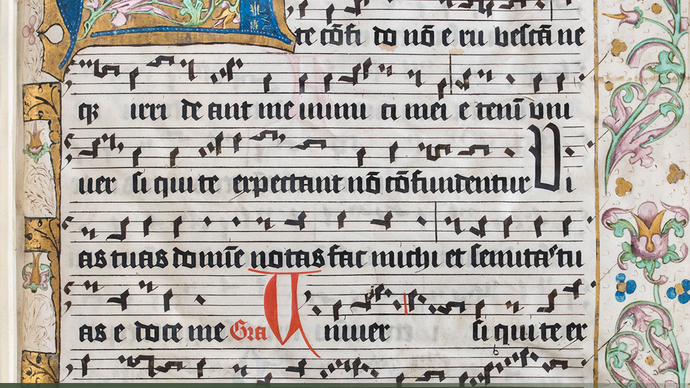 te cōfi do nō e ru bescā ne
qʒ irri de ant me inimi ci mei e tenī vni
uer si qui te expectant nō cōfundentur Vi
as tuas domīe notas fac michi et semitaˢ tu
as e doce me Gra Uniuer si qui te ex